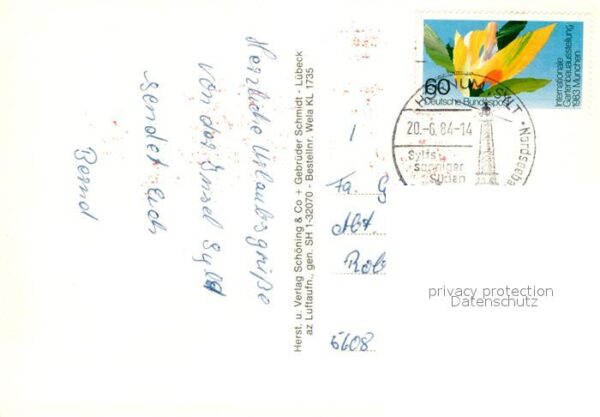 Herzliche Urlaubsgrüße
von der Insel Sylt
sendet euch
Bernd
Herst. u. Verlag Schöning & Co + Gebrüder Schmidt - Lübeck
az Luftaufn., gen. SH 1-32070 - Bestellnr. Wela KL 1735
60
Deutsche Bundespost
Internationale
Gartenbauausstellung
1983 München
20.-6.84-14
Sylts
sonniger
Süden
Fa. G
Abt.
Rob
5608
privacy protection
Datenschutz